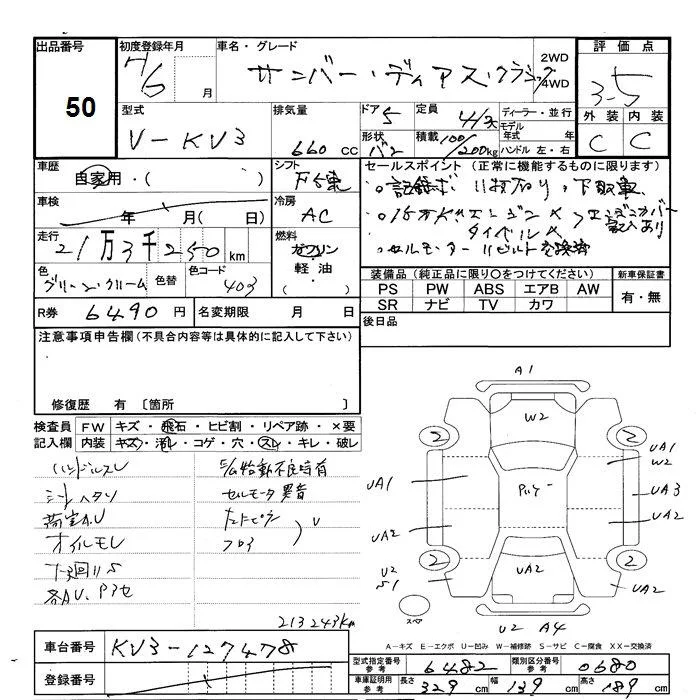 出品番号
50
初度登録年月
7/6
月
車名・グレード
サンバー・ディアス・クラシック
2WD
4WD
評価点
3.5
型式
V-KV3
排気量
660 cc
ドア
5
形状
バン
定員
4/2人
積載
100/200kg
ディーラー・並行
モデル年式 年
ハンドル 左・右
外装 内装
C C
車歴
自家用・( )
車検
年 月( 日)
走行
21万3千250 km
色
グリーン・クリーム
色替
色コード
403
シフト
冷房
AC
燃料
ガソリン
軽油・
( )
セールスポイント(正常に機能するものに限ります)
・記録簿 下取車
エンジンカバー
タイベル
記入あり
・セルモーターリビルト交換済
装備品(純正品に限り○をつけてください)
PS PW ABS エアB AW
SR ナビ TV カワ
新車保証書
有・無
R券 6490 円
名変期限 月 日
後日品
注意事項申告欄(不具合内容等は具体的に記入して下さい)
修復歴 有〔箇所 〕
検査員記入欄
FW キズ・飛石・ヒビ割・リペア跡・×要
内装 キズ・汚レ・コゲ・穴・スレ・キレ・破レ
ハンドルスレ
シートヘタリ
荷室A,U
オイルモレ
下廻りS
各AU、P7セ
E/G始動不良時有
セルモータ異音
U
213243km
A1
W2
2
2
UA1
UA1
W2
UA3
UA2
UA2
2
2
U2
S1
UA2
UA2
スペア
U2 A4
A-キズ E-エクボ U-凹み W-補修跡 S-サビ C-腐食 XX-交換済
車台番号
KV3-127478
登録番号
型式指定番号 参考
6482
類別区分番号 参考
0680
車庫証明用 参考
長さ 329 cm
幅 139 cm
高さ 189 cm